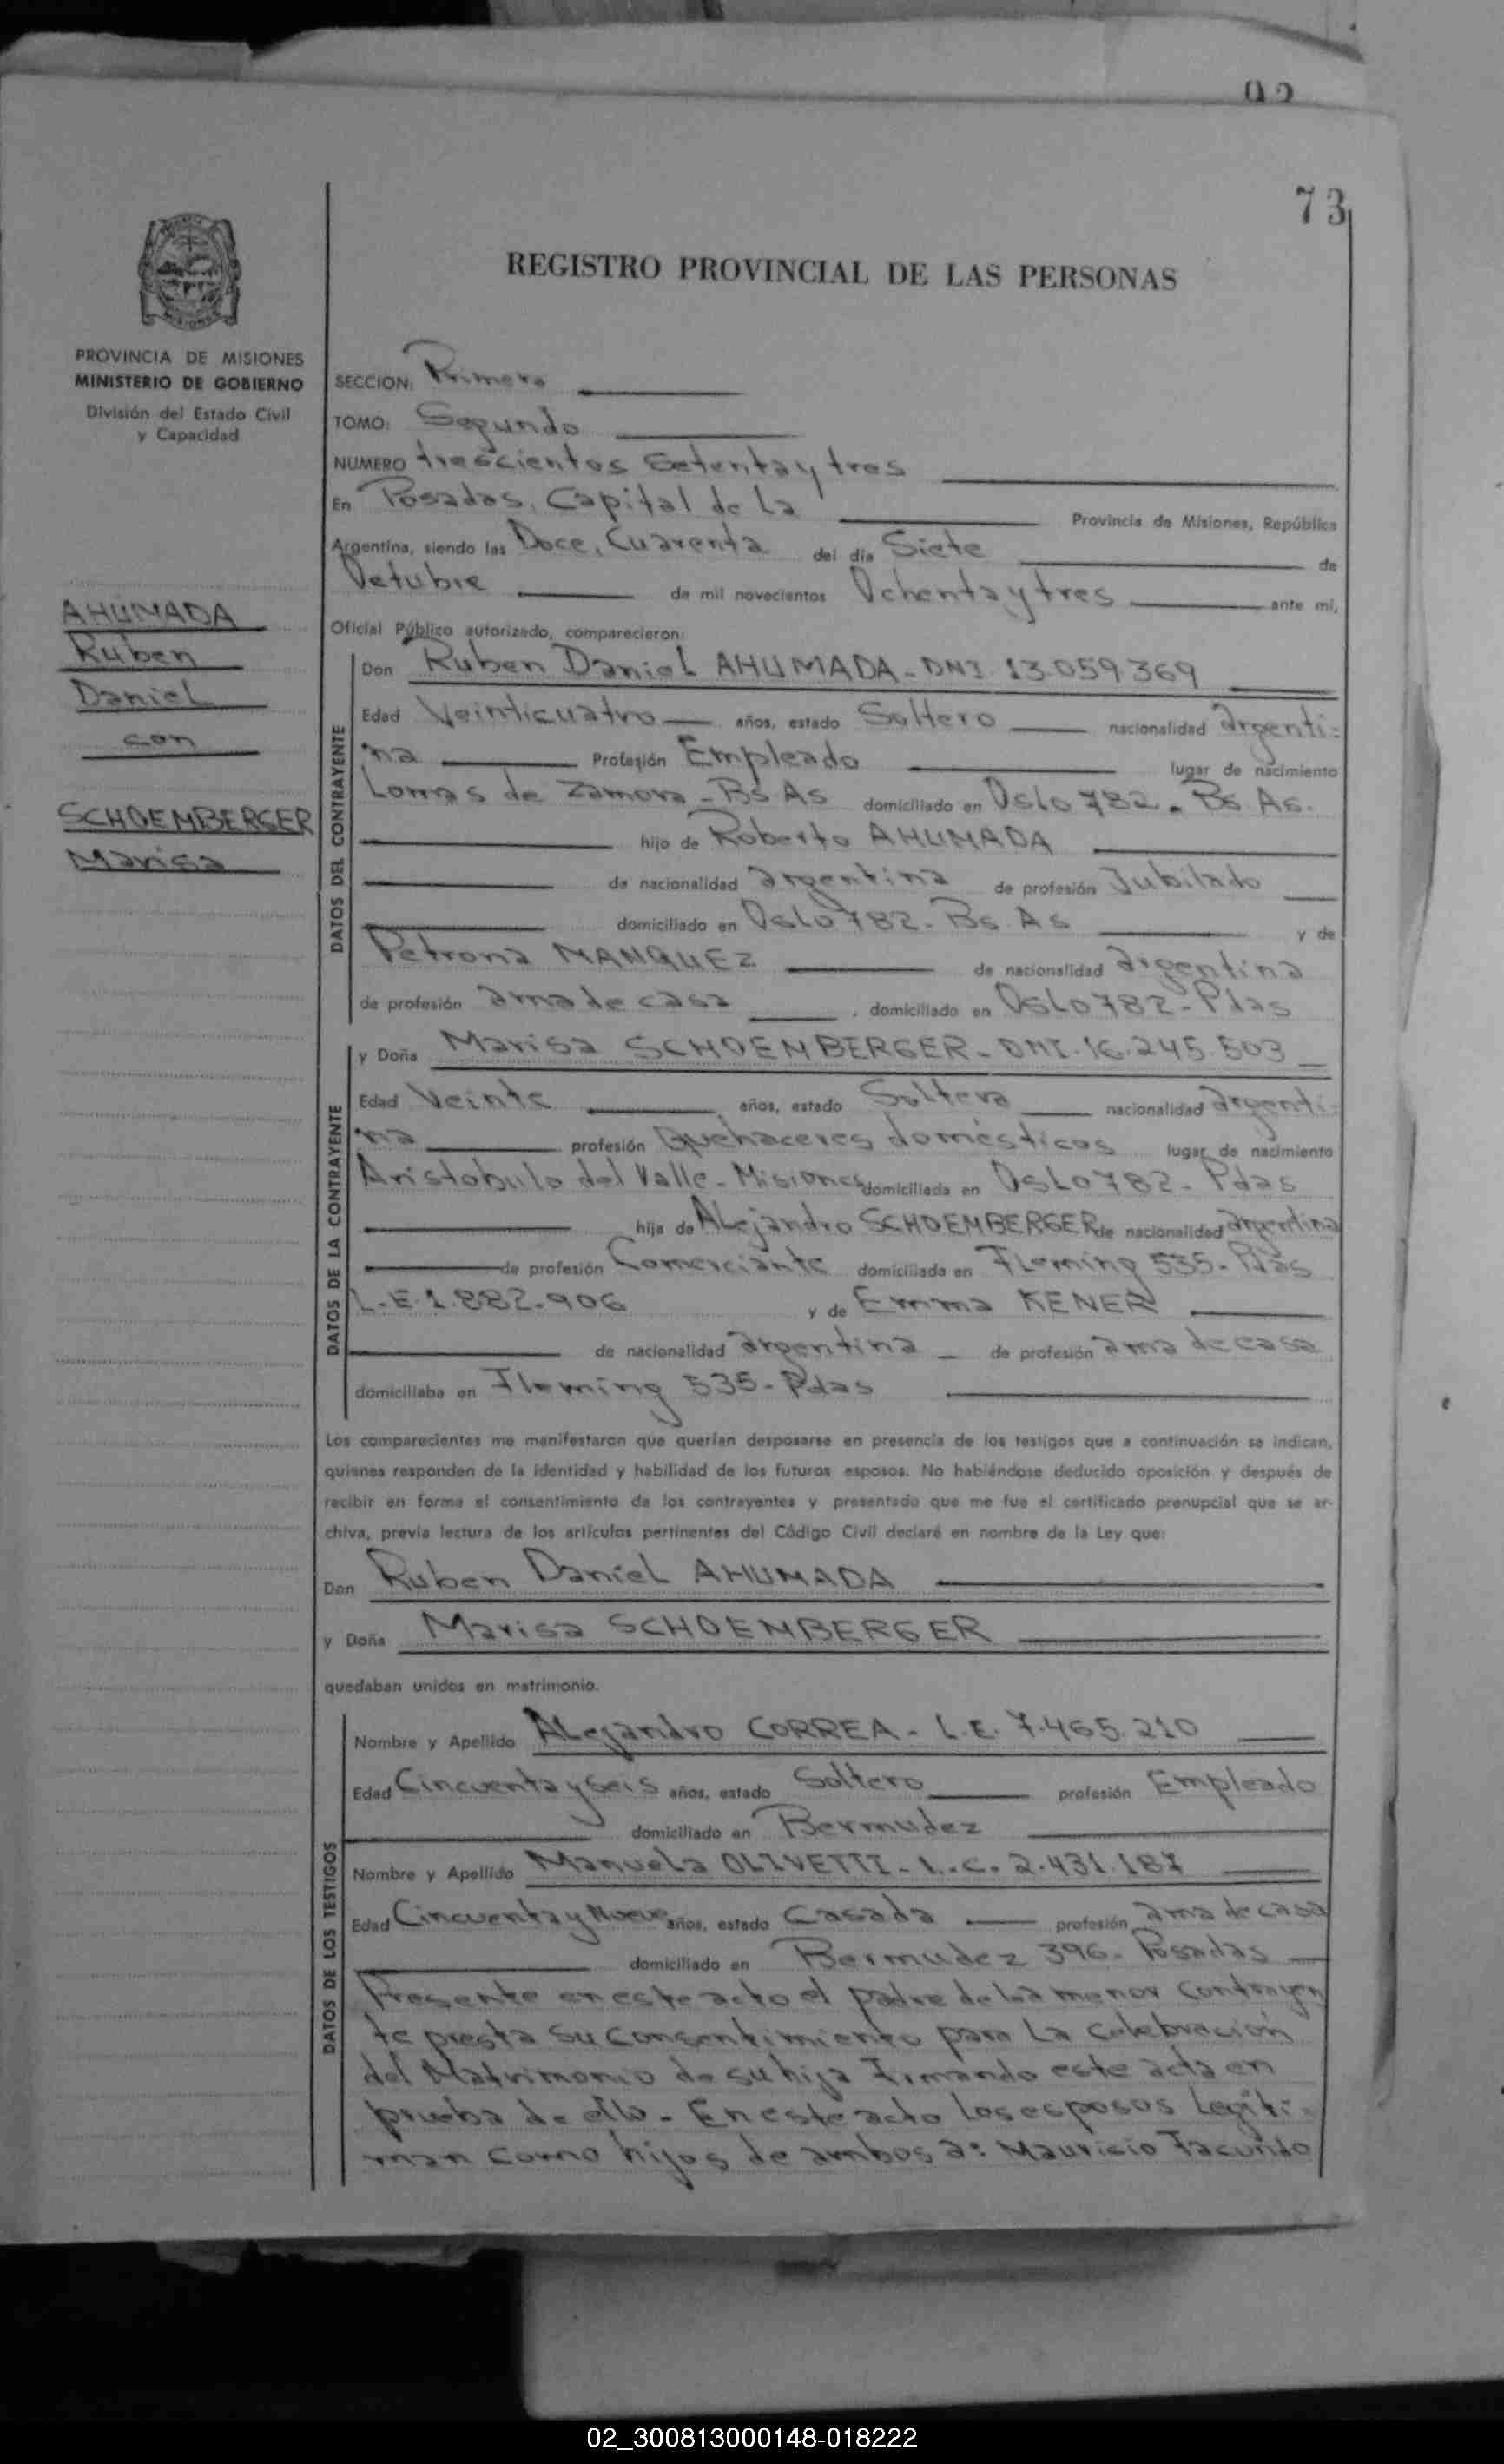 73
REGISTRO PROVINCIAL DE LAS PERSONAS
PROVINCIA DE MISIONES
MINISTERIO DE GOBIERNO
División del Estado Civil
y Capacidad
AHUMADA
Ruben
Daniel
con
SCHOEMBERGER
Marisa
SECCION: Primera
TOMO: Segundo
NUMERO trescientos setenta y tres
En Posadas, Capital de La Provincia de Misiones, República
Argentina, siendo las Doce, Cuarenta del día Siete de
Octubre de mil novecientos Ochenta y tres ante mí,
Oficial Público autorizado, comparecieron:
DATOS DEL CONTRAYENTE
Don Ruben Daniel AHUMADA - DNI. 13.059.369
Edad Veinticuatro años, estado Soltero nacionalidad argenti=
na Profesión Empleado lugar de nacimiento
Lomas de Zamora - Bs As domiciliado en Oslo 782. Bs. As.
hijo de Roberto AHUMADA
de nacionalidad argentina de profesión Jubilado
domiciliado en Oslo 782 - Bs. As y de
Petrona MANQUEZ de nacionalidad argentina
de profesión ama de casa , domiciliado en Oslo 782 - Pdas
DATOS DE LA CONTRAYENTE
y Doña Marisa SCHOEMBERGER - DNI. 16.245.503
Edad Veinte años, estado Soltera nacionalidad argenti=
na profesión Quehaceres domésticos lugar de nacimiento
Aristobulo del Valle - Misiones domiciliada en Oslo 782 - Pdas
hija de Alejandro SCHOEMBERGER de nacionalidad argentina
de profesión Comerciante domiciliado en Fleming 535 - Pdas
L.E. 1.882.906 y de Emma KENER
de nacionalidad argentina de profesión ama de casa
domiciliaba en Fleming 535 - Pdas
Los comparecientes me manifestaron que querían desposarse en presencia de los testigos que a continuación se indican,
quienes responden de la identidad y habilidad de los futuros esposos. No habiéndose deducido oposición y después de
recibir en forma el consentimiento de los contrayentes y presentado que me fue el certificado prenupcial que se ar-
chiva, previa lectura de los artículos pertinentes del Código Civil declaré en nombre de la Ley que:
Don Ruben Daniel AHUMADA
y Doña Marisa SCHOEMBERGER
quedaban unidos en matrimonio.
DATOS DE LOS TESTIGOS
Nombre y Apellido Alejandro CORREA - L.E. 7.465.210
Edad Cincuenta y seis años, estado Soltero profesión Empleado
domiciliado en Bermudez
Nombre y Apellido Manuela OLIVETTI - L.C. 2.431.187
Edad Cincuenta y Nueve años, estado Casada profesión ama de casa
domiciliado en Bermudez 396 - Posadas
Presente en este acto el padre de la menor contrayen
te presta su consentimiento para La celebración
del Matrimonio de su hija Firmando este acta en
prueba de ello - En este acto los esposos Legiti=
man como hijos de ambos a: Mauricio Facundo
02_300813000148-018222